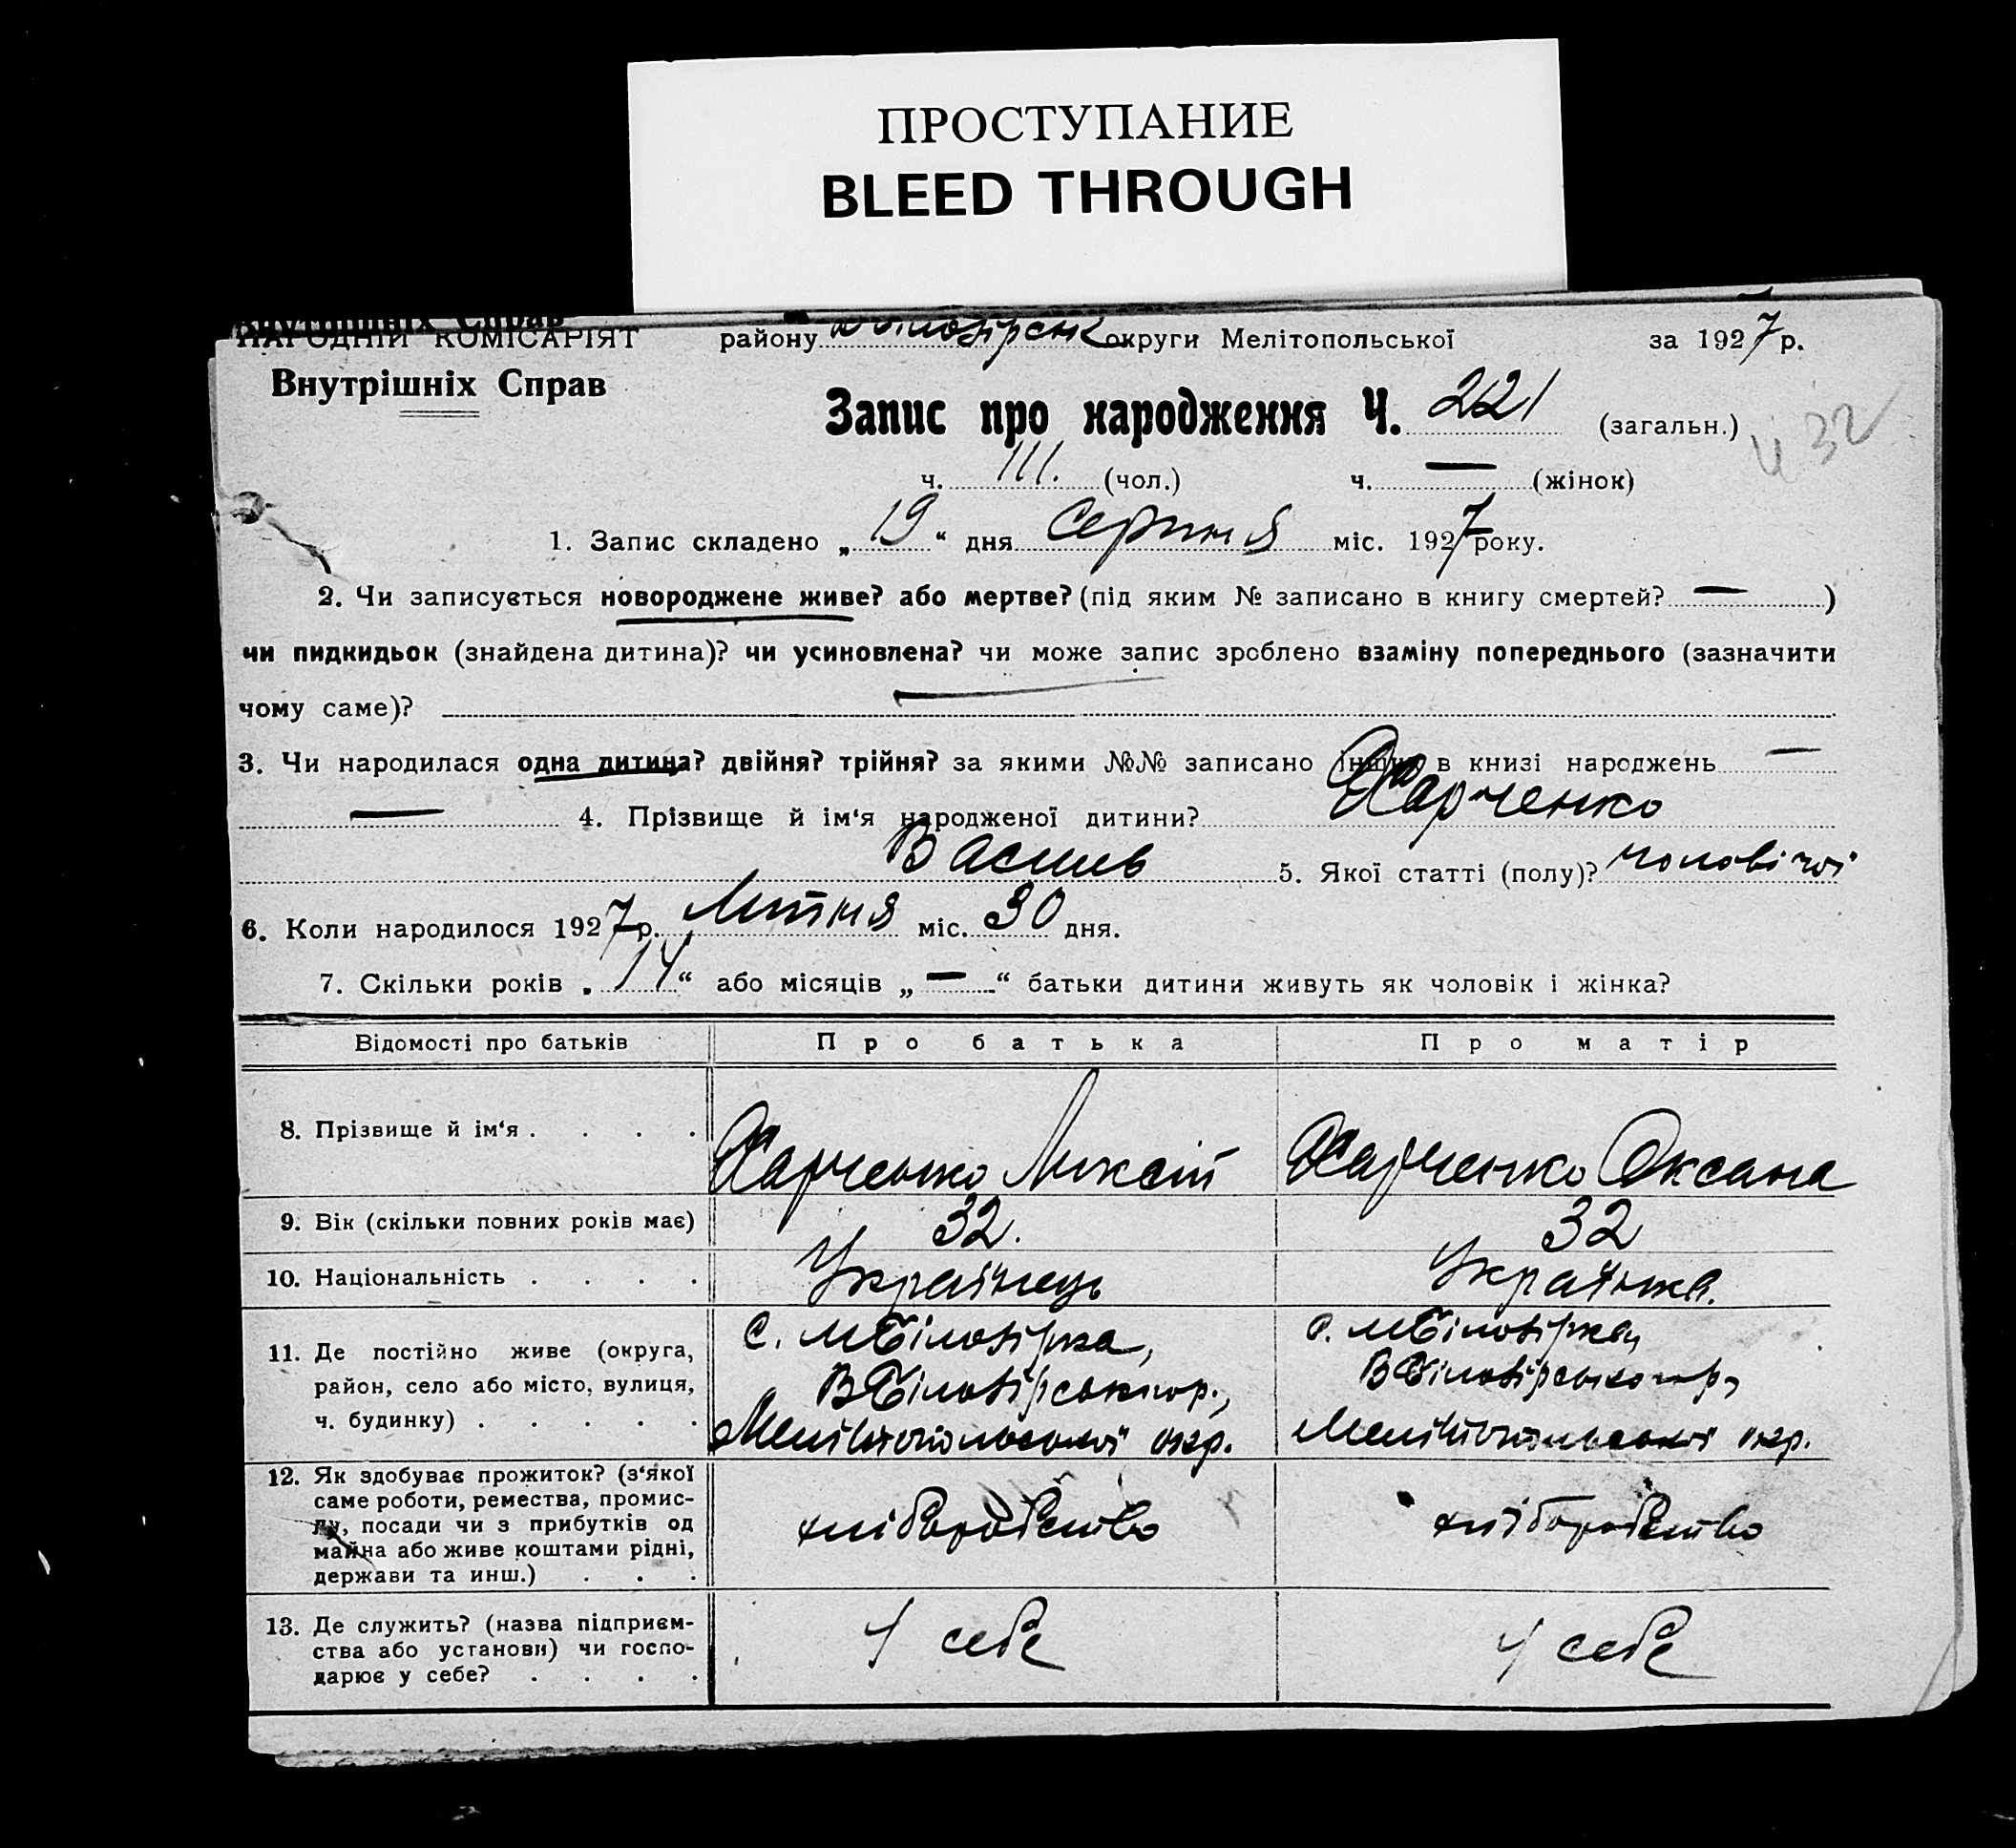 ПРОСТУПАНИЕ
BLEED THROUGH
Внутрішніх Справ
НАРОДНІЙ КОМІСАРІЯТ району округи Мелітопольської за 1927 р.
Внутрішніх Справ
Запис про народження Ч. 221 (загальн.) 432
ч. 111. (чол.) ч. — (жінок)
1. Запис складено „ 19 “ дня Серпня міс. 1927 року.
2. Чи записується новороджене живе? або мертве? (під яким № записано в книгу смертей? — )
чи пидкидьок (знайдена дитина)? чи усиновлена? чи може запис зроблено взаміну попереднього (зазначити
чому саме)? —
3. Чи народилася одна дитина? двійня? трійня? за якими №№ записано інших в книзі народжень —
— 4. Прізвище й ім‘я народженої дитини? Харченко
Василь 5. Якої статті (полу)? чоловічої
6. Коли народилося 1927 р. Липня міс. 30 дня.
7. Скільки років „ 14 “ або місяців „ — “ батьки дитини живуть як чоловік і жінка?
Відомості про батьків Про батька Про матір
8. Прізвище й ім‘я . . . . Харченко Микит Харченко Оксана
9. Вік (скільки повних років має) 32. 32
10. Національність . . . . Українець Українка.
11. Де постійно живе (округа, с. МБілозірка, с. МБілозірка,
район, село або місто, вулиця, ВБілозірськ р., ВБілозірського р,
ч. будинку) . . . . . Мелітопольської окр. Мелітопольської окр.
12. Як здобуває прожиток? (з‘якої
саме роботи, ремества, промис-
лу, посади чи з прибутків од хліборобство хліборобство
майна або живе коштами рідні,
держави та инш.) . . .
13. Де служить? (назва підприєм-
ства або установи) чи госпо- У себе У себе
дарює у себе? . . . .